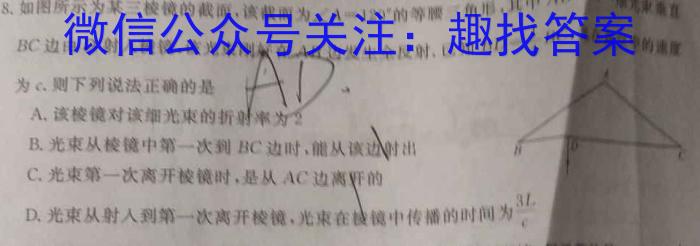 8. 如图所示为某三棱镜的截面,该截面为 A=120°的等腰三角形,其中
微信公众号关注：趣找答案
BC边 的速度
为c.则下列说法正确的是
AD
A. 该棱镜对该细光束的折射率为2
B. 光束从棱镜中第一次到BC边时,能从该边射出
C. 光束第一次离开棱镜时,是从AC边离开的
D. 光束从射入到第一次离开棱镜,光束在棱镜中传播的时间为3L/c
A
B
D
C